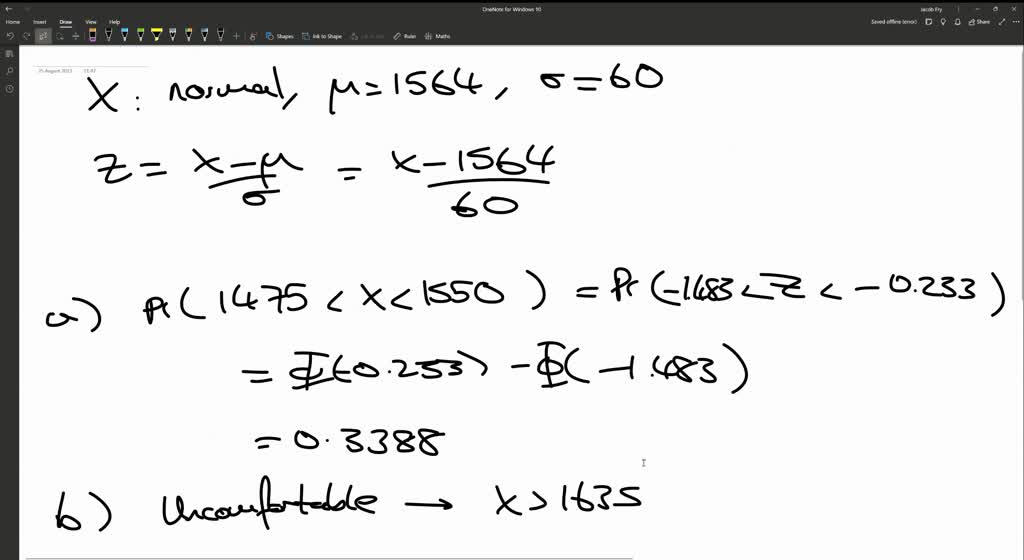 OneNote for Windows 10
Jacob Fry
Home Insert Draw View Help
Saved offline (error) Share
Shapes Ink to Shape Ruler Maths
25 August 2023
X : normal, μ=1564, σ=60
Z = X-μ/σ = X-1564/60
a) Pr(1475 < X < 1550) = Pr(-1.483 < Z < -0.233)
= Φ(-0.233) - Φ(-1.483)
= 0.3388
b) Uncomfortable → X > 1635